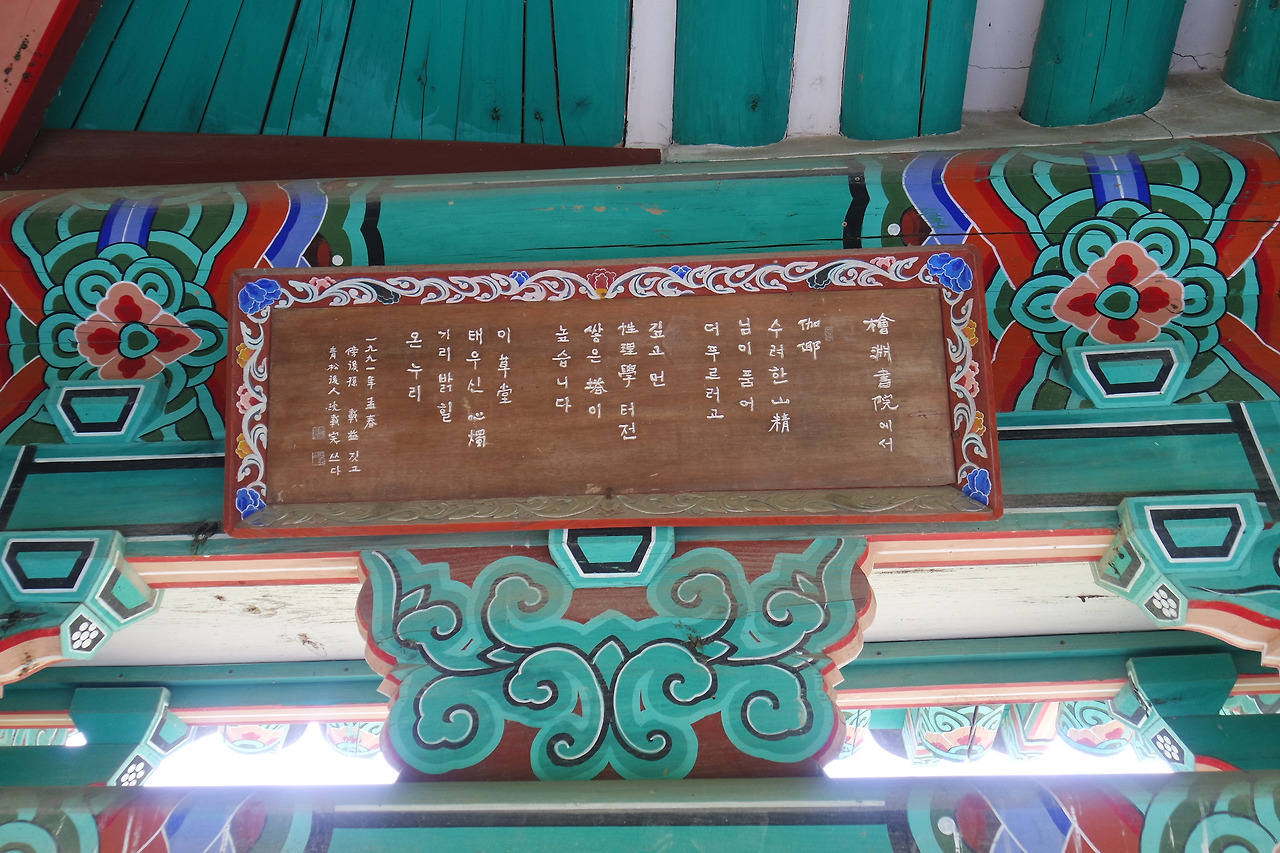 檜淵書院에서
伽倻
수려한 山精
님이 품어
더 푸르러고
깊고 먼
性理學 터전
쌓은 塔이
높습니다
이 草堂
태우신 心燭
기리 밝힐
온 누리
一九九一年 孟春
傍後孫 載益 짓고
靑松後人 沈載完 쓰다